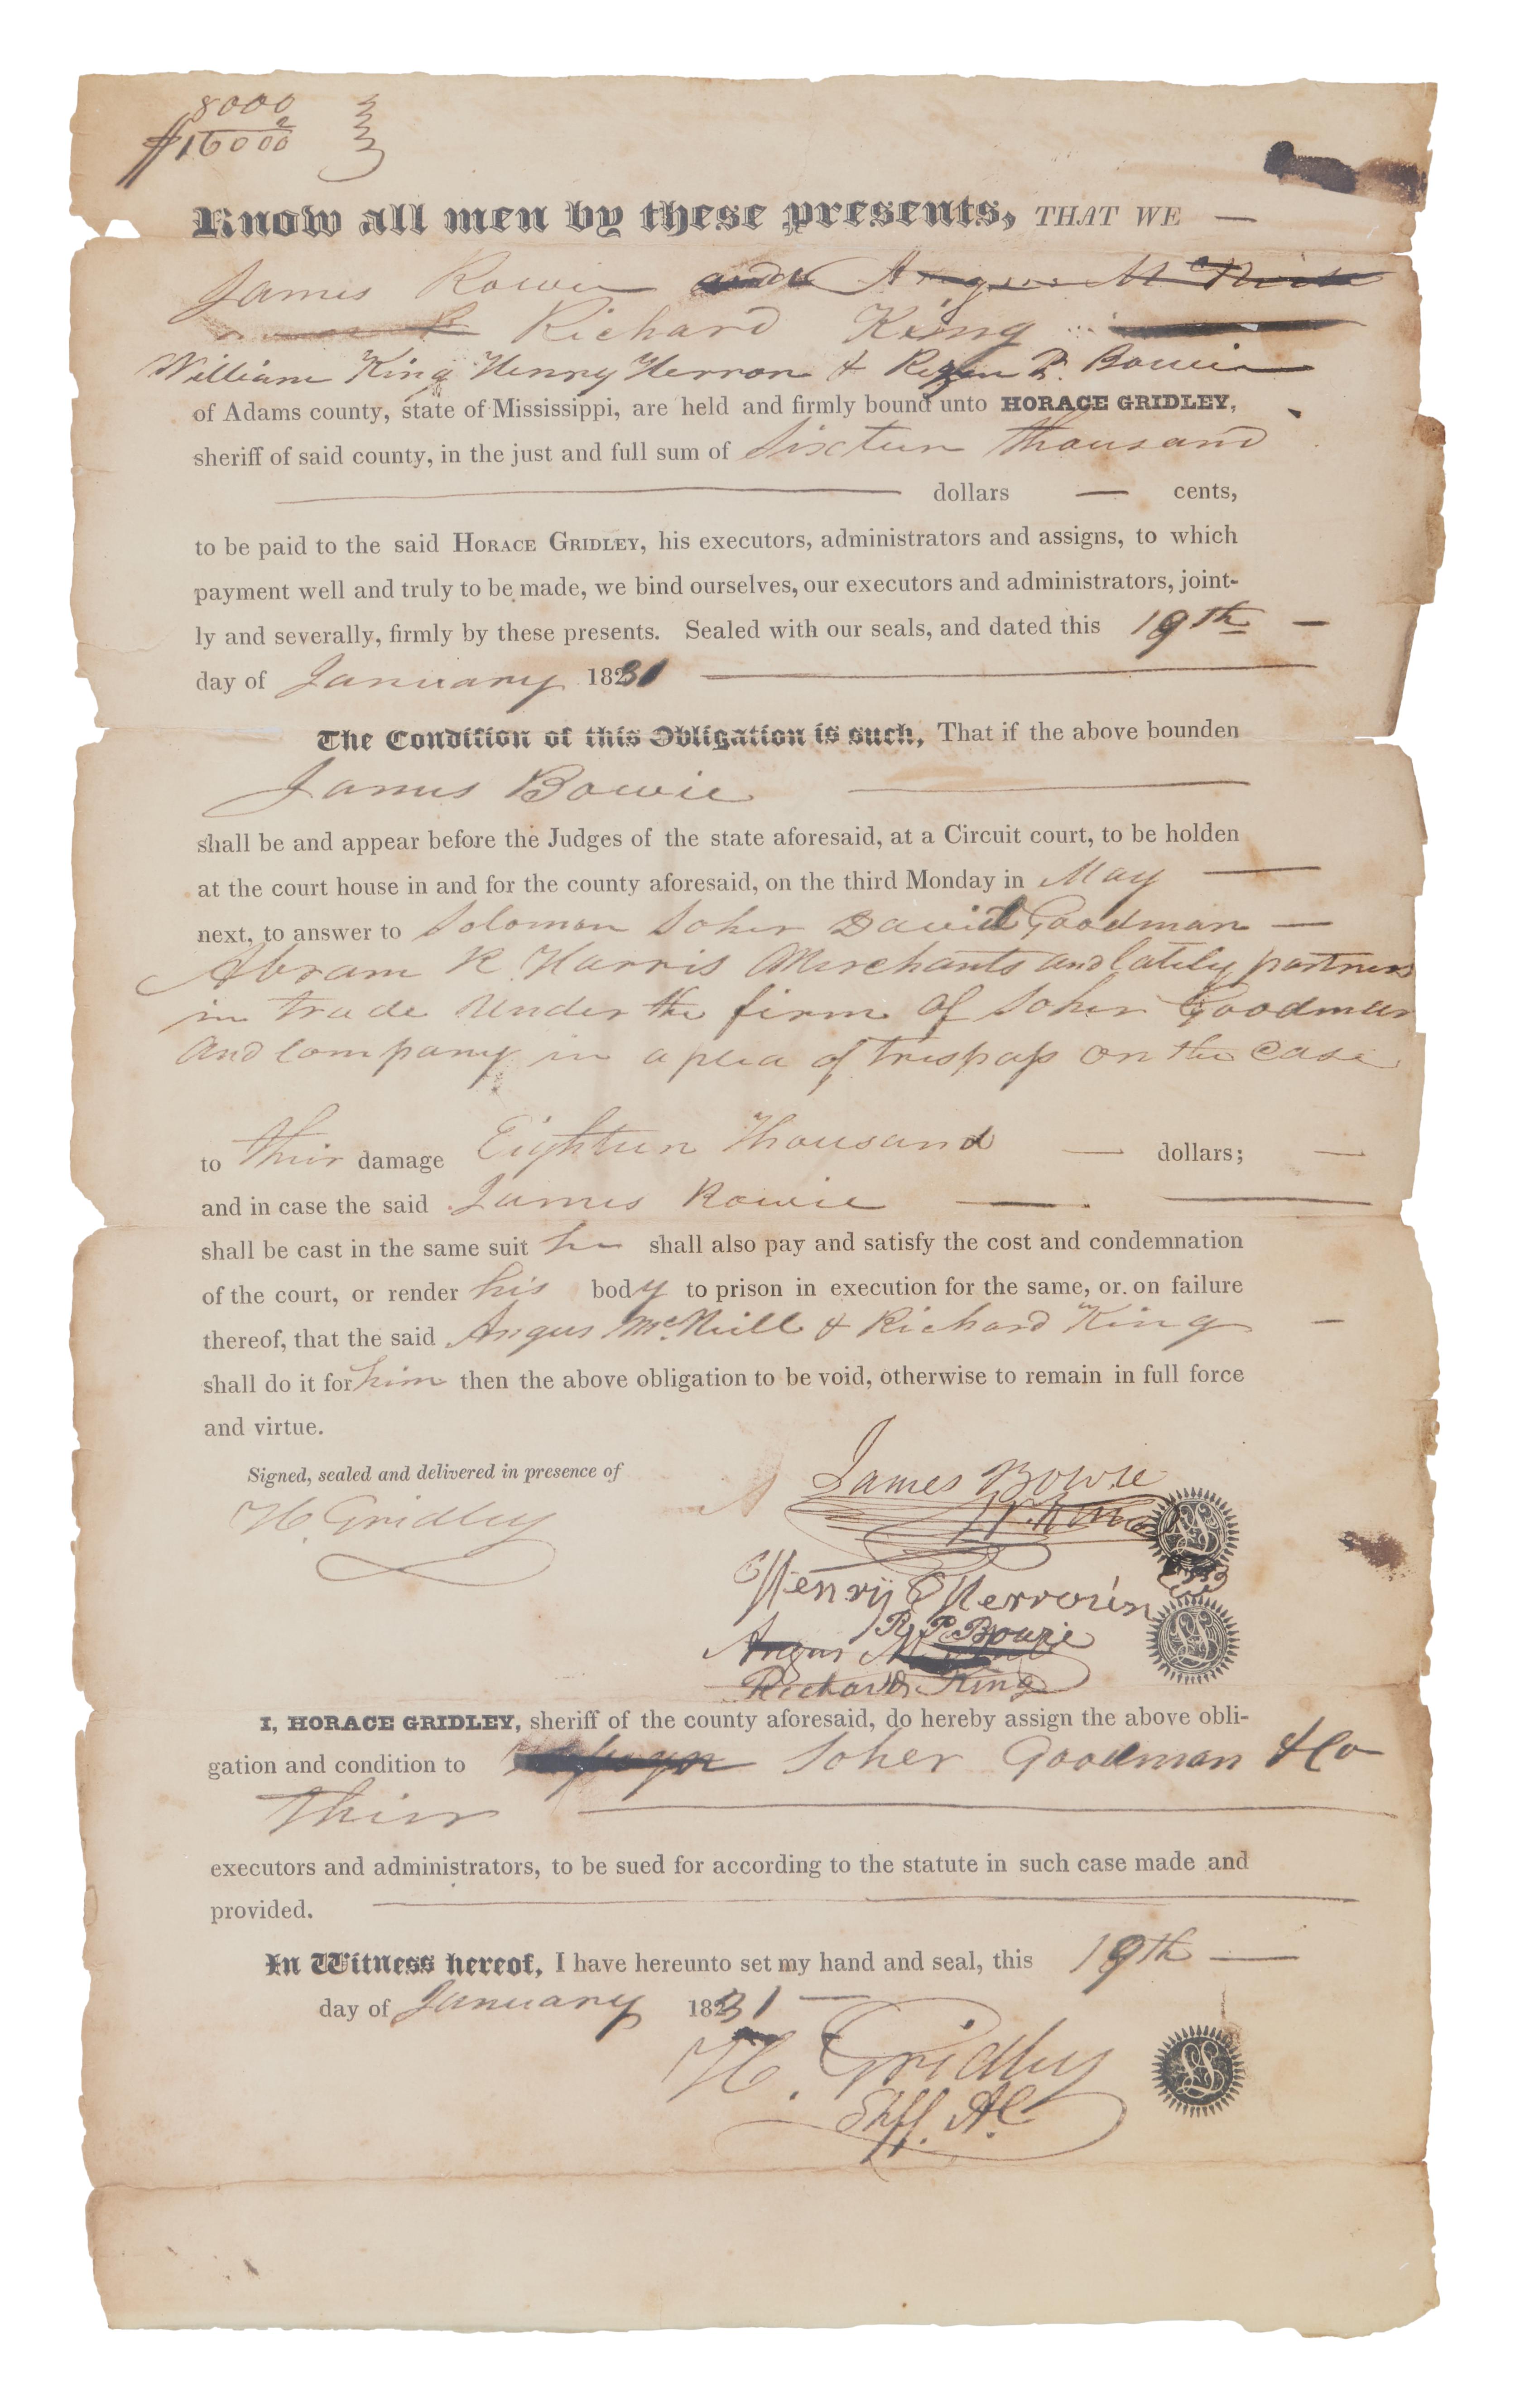 8000
2
$16000
Know all men by these presents, THAT WE —
James Bowie and Angus McNeill
Richard King
William King Henry Herron & Rezin P. Bowie
of Adams county, state of Mississippi, are held and firmly bound unto HORACE GRIDLEY,
sheriff of said county, in the just and full sum of Sixteen Thousand
dollars — cents,
to be paid to the said HORACE GRIDLEY, his executors, administrators and assigns, to which
payment well and truly to be made, we bind ourselves, our executors and administrators, joint-
ly and severally, firmly by these presents. Sealed with our seals, and dated this 19th —
day of January 1831
The Condition of this Obligation is such, That if the above bounden
James Bowie
shall be and appear before the Judges of the state aforesaid, at a Circuit court, to be holden
at the court house in and for the county aforesaid, on the third Monday in May —
next, to answer to Solomon Soher David Goodman —
Abram R Harris Merchants and lately partners
in trade Under the firm of Soher Goodman
And Company in a plea of trespass on the case
to their damage Eighteen Thousand — dollars; —
and in case the said James Bowie —
shall be cast in the same suit he shall also pay and satisfy the cost and condemnation
of the court, or render his body to prison in execution for the same, or on failure
thereof, that the said Angus McNeill & Richard King —
shall do it for him then the above obligation to be void, otherwise to remain in full force
and virtue.
Signed, sealed and delivered in presence of
H. Gridley
James Bowie
W. King
Henry Herroün
R. P. Bowie
Angus
Richard King
I, HORACE GRIDLEY, sheriff of the county aforesaid, do hereby assign the above obli-
gation and condition to Soher Goodman & Co
Their
executors and administrators, to be sued for according to the statute in such case made and
provided.
In Witness hereof, I have hereunto set my hand and seal, this 19th —
day of January 1831 —
H. Gridley
Shff. A.C.